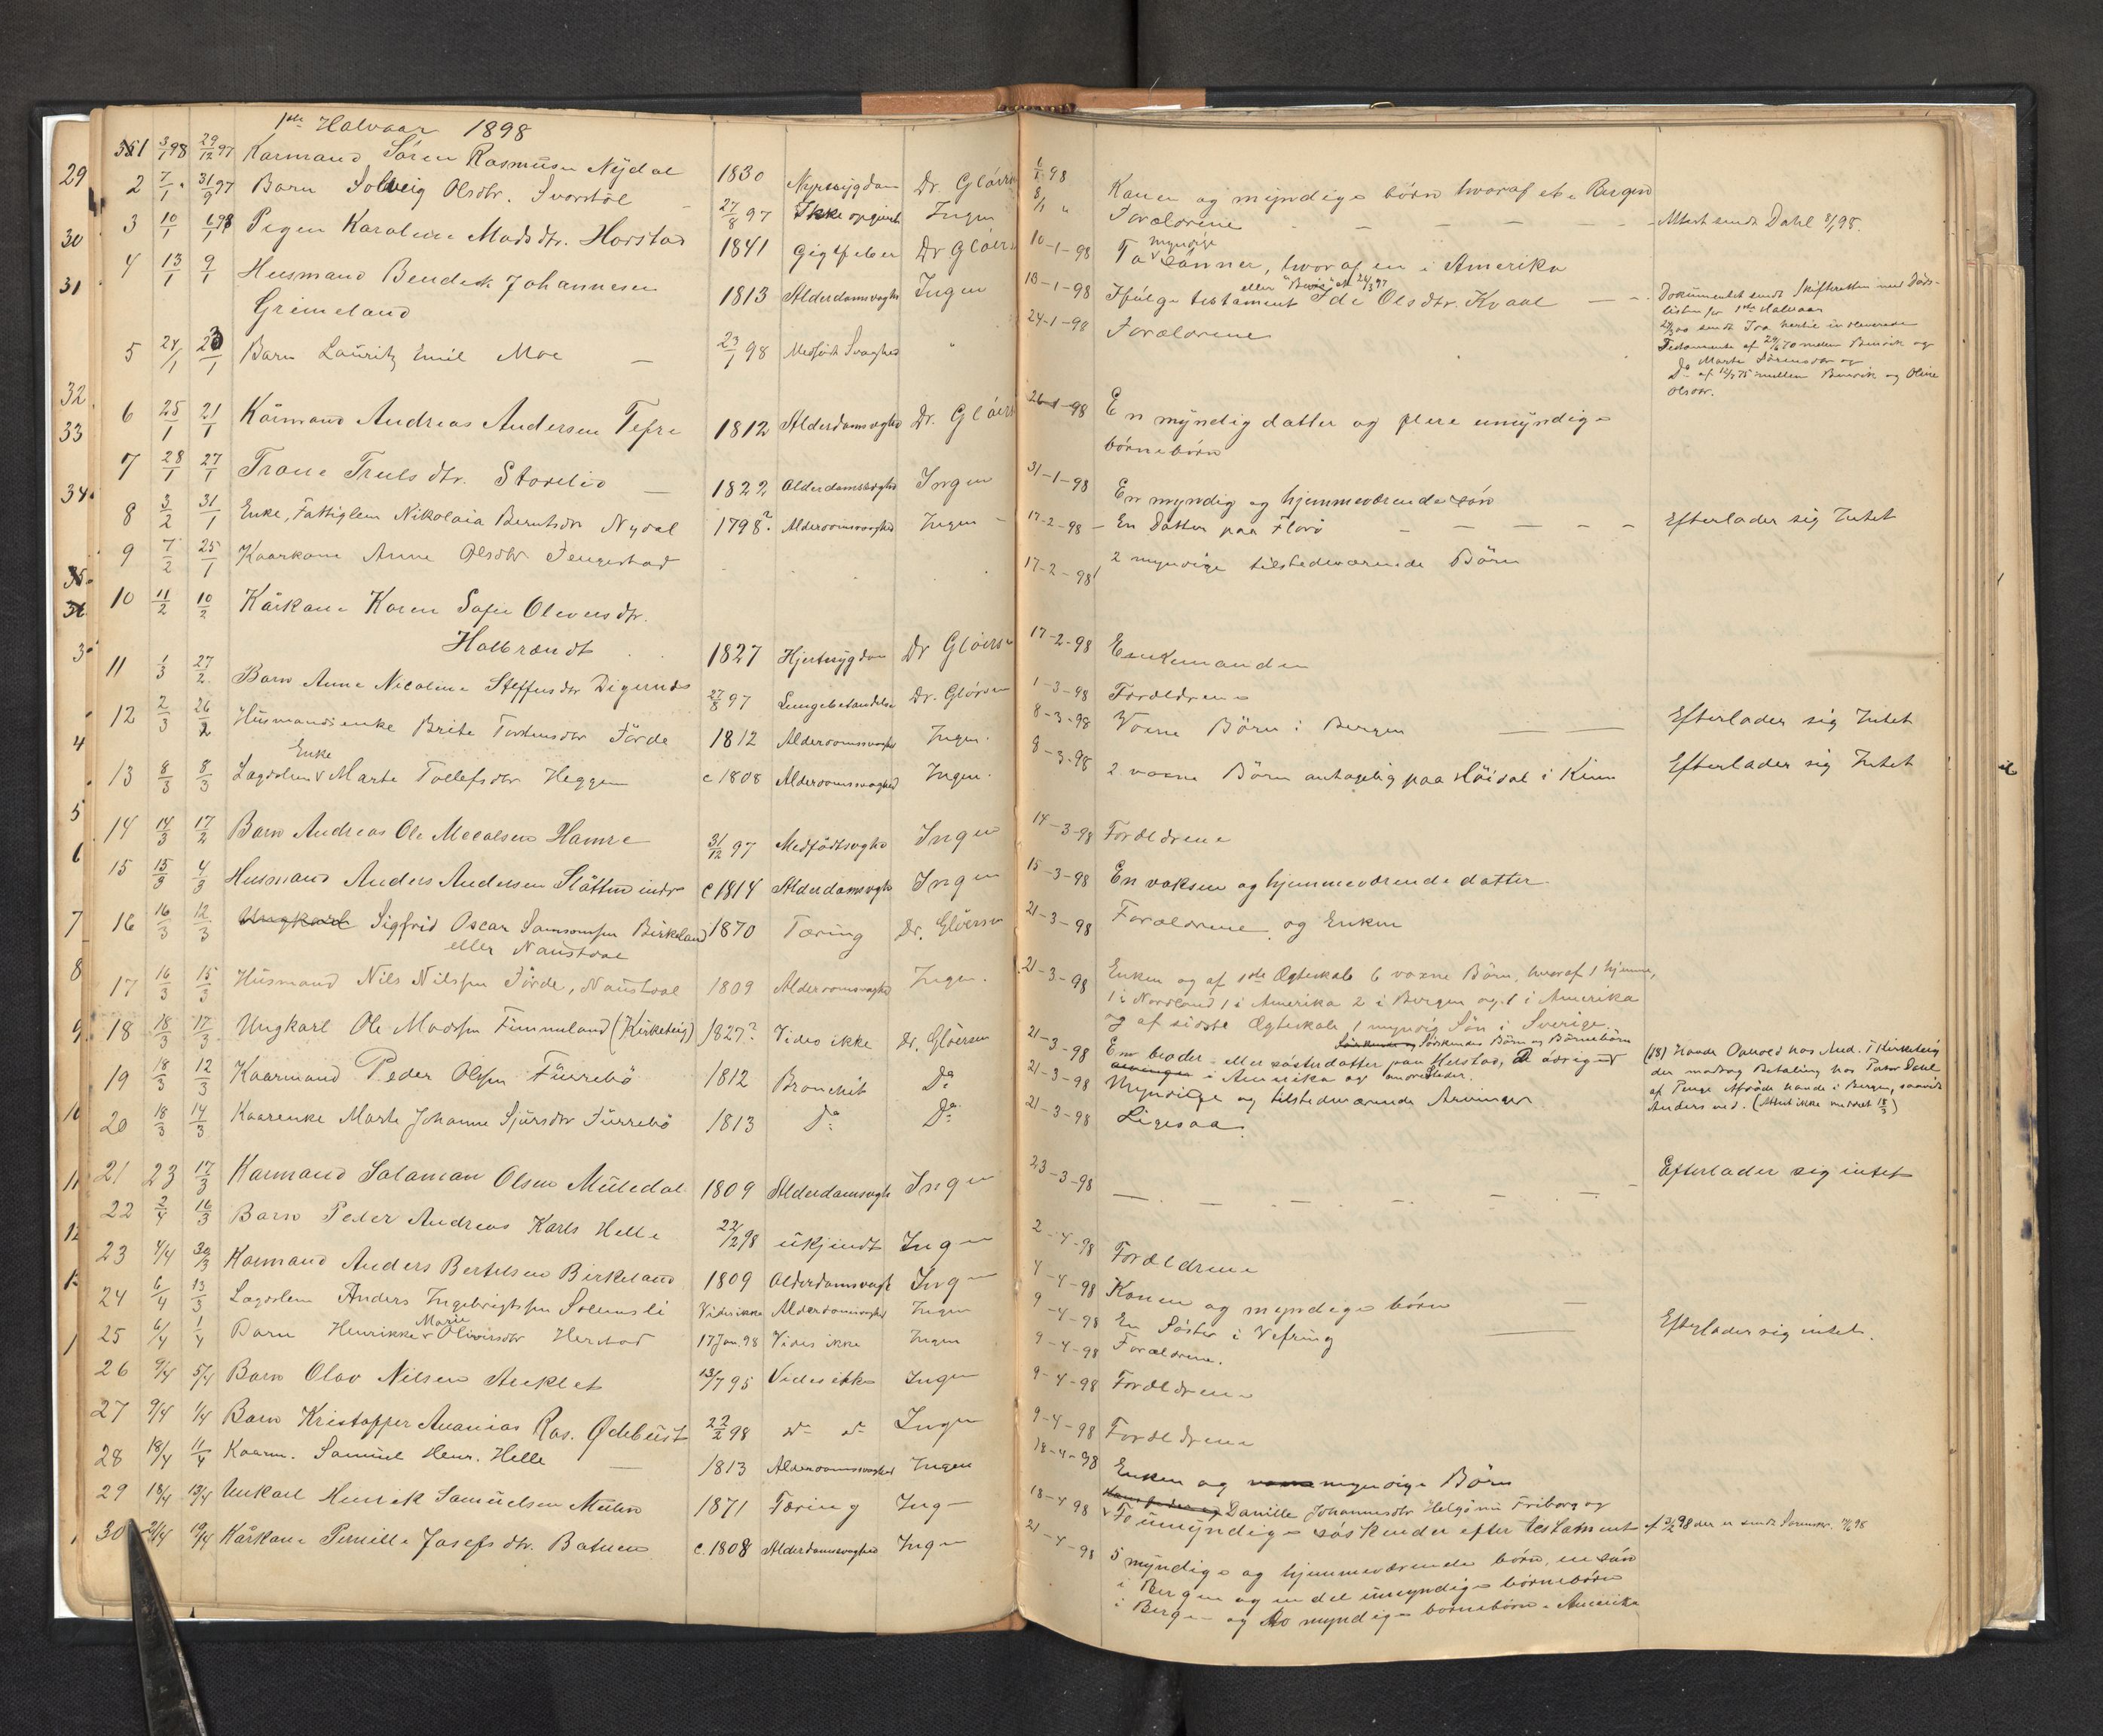 1ste Halvaar 1898
1 3/1 98 29/12 97 Karmand Sören Rasmusen Nydal 1830 Nyresygdom Dr. Glöersen 6/1 98 Konen og myndige börn hvoraf et i Bergen
2 7/1 " 31/9 97 Barn Solveig Olsdtr. Svorstöl 27/8 97 Ikke opgivet Ingen 8/1 " Forældrene - - - - - Attest sendt Dahl 8/1 98.
3 10/1 6/1 98 Pigen Karoline Madsdtr. Horstad 1841 Gigtfeber Dr Glöersen 10-1-98 To myndige sönner, hvoraf en i Amerika
4 13/1 9/1 Husmand Bendik Johannesen
Grimeland 1813 Alderdomsvaghd Ingen 18-1-98 Ifölge testament Ide Olsdtr. Kvaal
Dokumentet sendt Skifteretten med Döds-
listen for 1ste Halvaar
Testamente af 29/6 70 mellem Benrik og
Do Marte Sörensdtr og
Do af 12/7 75 mellem Benrik og Oline
Olsdtr.
5 24/1 23/1 Barn Lauritz Emil Moe — 23/1 98 Medfödt Svaghed " 24-1-98 Forældrene
6 25/1 21/1 Kårmand Andreas Andersen Tefre 1812 Alderdomsvaghd Dr. Glöersen 26-1-98 En myndig datter og flere umyndige
börnebörn
7 28/1 27/1 Trone Trulsdtr. Storelid — 1822 Alderdomssvaghd Ingen 31-1-98 En myndig og hjemmeværende sön
8 3/2 31/1 Enke, Fattiglem Nikolaia Berntsdtr Nydal 1798? Alderdomssvaghed Ingen - 17-2-98 - En Datter paa Florö - - - - - Efterlader sig Intet
9 7/2 25/1 Kaarkone Anne Olsdtr Fengestad 17-2-98 2 myndige tilstedeværende Börn
10 11/2 10/2 Kårkone Karen Sofie Oliversdtr.
Halbrændt 1827 Hjertesygdom Dr Glöersen 17-2-98 Enkemanden
11 1/3 27/2 Barn Anne Nicoline Steffensdtr Digernes 27/8 97 Lungebetændelse Dr. Glöersen 1-3-98 Forældrene
12 2/3 26/2 Husmandsenke Brite Torstensdtr Förde 1812 Alderdomssvaghed Ingen. 8-3-98 Voxne Börn i Bergen — — Efterlader sig Intet
13 8/3 8/3 Lægdslem Enke Marte Tollefsdtr Heggen c 1808 Alderdomssvaghed Ingen. 8-3-98 2 voxne Börn antagelig paa Höidal i Kinn Efterlader sig Intet
14 14/3 17/2 Barn Andreas Ole Moealsen Hamre 31/12 97 Medfödtsvaghd Ingen 14-3-98 Forældrene
15 15/3 4/3 Husmand Anders Andersen Slåtten indre c 1814 Alderdomsvaghd Ingen 15-3-98 En voksen og hjemmeværende datter.
16 16/3 12/3 Ungkarl Sigfrid Oscar Samsonsen Birkeland
eller Naustdal 1870 Tæring Dr. Glöersen 21-3-98 Forældrene og Enken
17 16/3 15/3 Husmand Nils Nilssen Förde, Naustdal 1809 Alderdomssvaghd Ingen. 21-3-98 Enken og af 1ste Ægteskab 6 voxne Börn, hvoraf 1 hjemme,
1 i Nordland 1 i Amerika 2 i Bergen og 1 i Amerika
og af sidste Ægteskab 1 myndig Sön i Sverige.
18 18/3 17/3 Ungkarl Ole Madssen Fimmeland (Kirketeig) 1827? Vides ikke Dr. Glöersen 21-3-98 En broder- eller sösterdatter paa Herstad, Söskendes Börn og Börnebörn
i Amerika og andresteder.
(18) Havde Ophold hos And. i Kirketeig
der modtog Betaling hos Pastor Dahl
af Penge Afdöde havde i Bergen, saavidt
Anders ved. (Attest ikke meddelt 18/3)
19 18/3 12/3 Kaarmand Peder Olssen Fürrebö 1812 Bronchit Do 21-3-98 Myndige og tilstedeværende Arvinger
20 18/3 14/3 Kaarenke Marte Johanne Sjursdtr Fürrebö 1813 Do Do 21-3-98 Ligesaa.
21 23 17/3 Karmand Salaman Olsen Müledal 1809 Alderdomsvagh Ingen 23-3-98 — - - - - - Efterlader sig intet
22 2/4 16/3 Barn Peder Andreas Karls Helle 22/2 98 ukjendt Ingen 2-4-98 Forældrene
23 4/4 30/3 Karmand Anders Bertelsen Birkeland 1809 Alderdomsvagh Ingen 4-4-98 Konen og myndige börn
24 6/4 13/3 Lægdslem Anders Ingebrigtssen Solemsli Vides ikke Alderdomssvaghed Ingen 9-4-98 En Söster i Vefring — Efterlader sig intet.
25 6/4 1/4 Barn Henrikke Marie Oliversdtr Herstad 17 Jan. 98 Vides ikke Ingen 9-4-98 Forældrene.
26 9/4 5/4 Barn Olav Nilsen Aseklet 13/7 95 Vides ikke Ingen 9-4-98 Forældrene
27 9/4 1/4 Barn Kristoffer Ananias Ras. Ödebust 22/2 98 do do Ingen 9-4-98 Forældrene
28 18/4 11/4 Kaarm. Samuel Henr. Helle — 1813 Alderdomssvaghed Ingen 18-4-98 Enken og myndige Börn
29 18/4 13/4 Unkarl Henrik Samuelsen Mulen 1871 Tæring Ing— 18-4 98 Danille Johannesdtr Helgö nu Friborg og
To umyndige söskender efter testament af 3/2 98 der er sendt Sorenskr. 14/6 98
30 21/4 19/4 Kårkone Pernille Josefsdtr. Batuen c. 1808 Alderdomsvaghed Ing— 21-4-98 5 myndige og hjemmeværende börn, en sön
i Bergen og en del umyndige börnebörn
i Bergen og to myndige börnebörn i Amerika
29
30
31
32
33
34
3
4
5
6
7
8
9
10
11
12